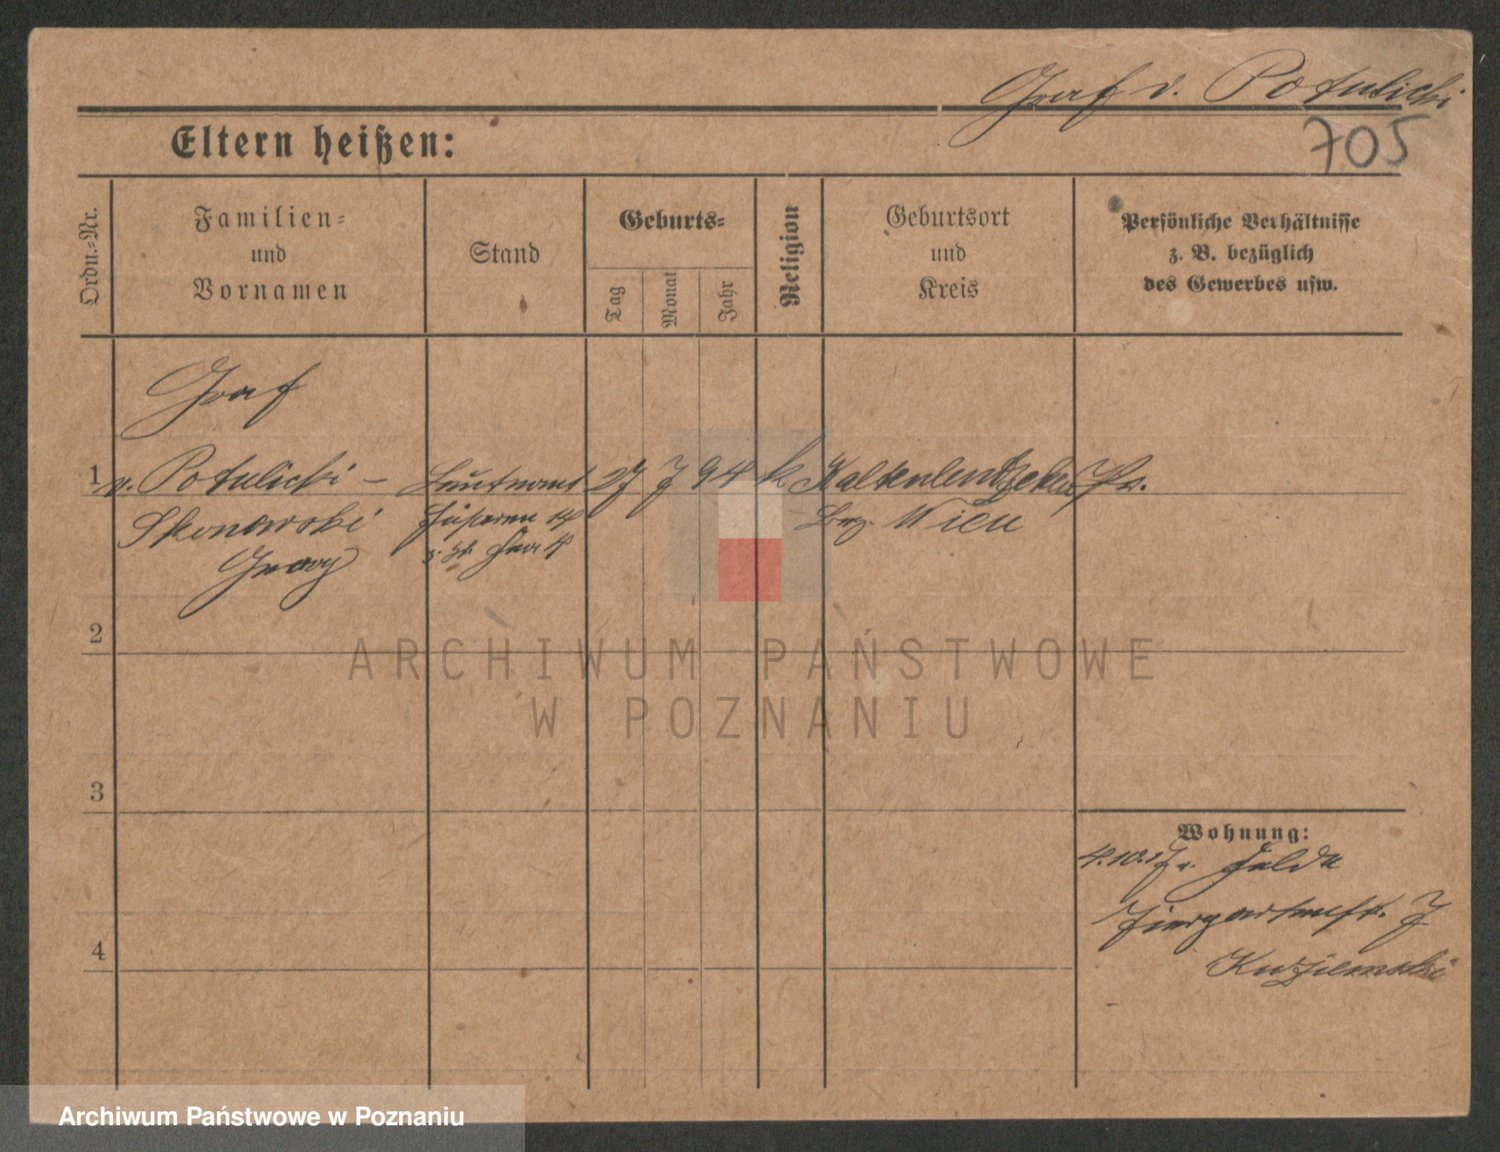 Graf v. Potulicki
705
Eltern heißen:
Ordn.-Nr.
Familien-
und
Vornamen
Stand
Geburts-
Tag
Monat
Jahr
Religion
Geburtsort
und
Kreis
Persönliche Verhältnisse
z. B. bezüglich
des Gewerbes usw.
Graf
1 v. Potulicki - Leutnant 27 7 94 k Kaltenleutgeben Pr.
Husaren 14 Bez. Wien
z. Zt.
Georg
2
3
Wohnung:
4.10.17 v. Fulda
Tiergartenstr. 7
4
ARCHIWUM PAŃSTWOWE
W POZNANIU
Archiwum Państwowe w Poznaniu